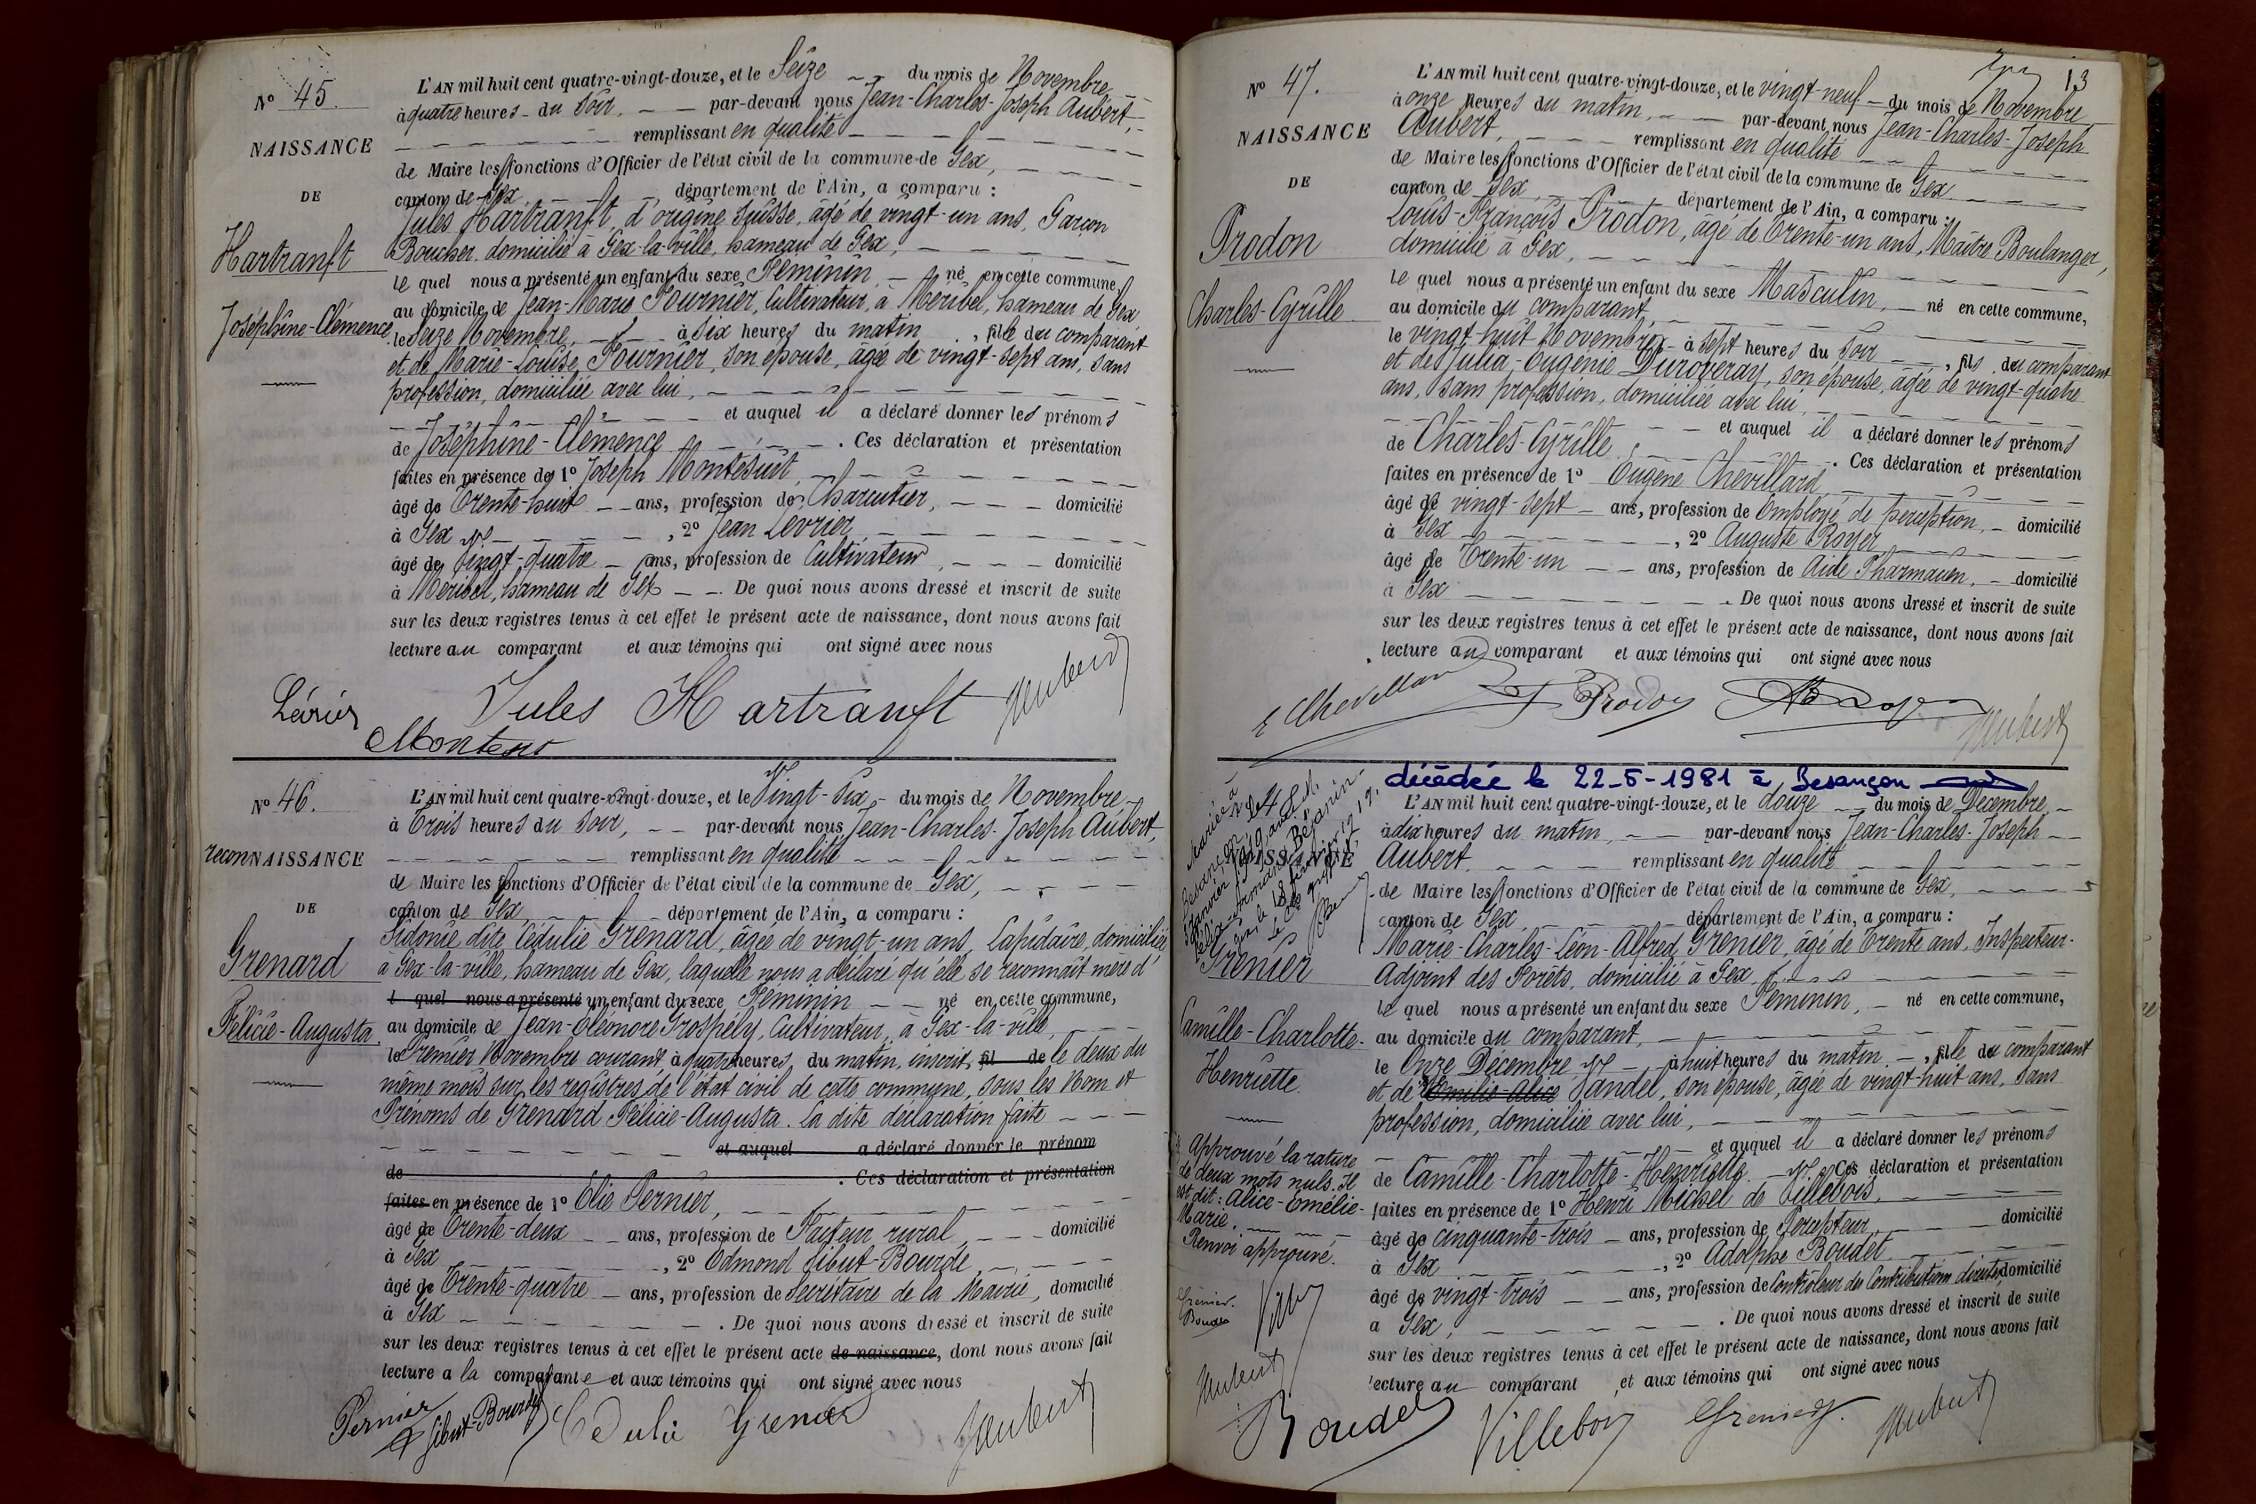 N° 45.
NAISSANCE
DE
Hartranft
Joséphine-Clémence
L'AN mil huit cent quatre-vingt-douze, et le Seize du mois de Novembre
à quatre heures du soir, par-devant nous Jean-Charles-Joseph Aubert,
remplissant en qualité
de Maire les fonctions d'Officier de l'état civil de la commune de Gex,
canton de Gex département de l'Ain, a comparu :
Jules Hartranft, d'origine suisse, âgé de vingt-un ans, Garçon
Boucher, domicilié à Gex-la-Ville, hameau de Gex,
le quel nous a présenté un enfant du sexe Féminin, né en cette commune,
au domicile de Jean-Marie Fournier, Cultivateur, à Meribel, hameau de Gex
le Seize Novembre, à six heures du matin, fille du comparant
et de Marie-Louise Fournier, son épouse, âgée de vingt-sept ans, sans
profession, domiciliée avec lui,
et auquel il a déclaré donner les prénoms
de Joséphine-Clémence. Ces déclaration et présentation
faites en présence de 1° Joseph Montésuit,
âgé de Trente-huit ans, profession de Charcutier, domicilié
à Gex, 2° Jean Levrier
âgé de Vingt-quatre ans, profession de Cultivateur, domicilié
à Meribel, hameau de Gex. De quoi nous avons dressé et inscrit de suite
sur les deux registres tenus à cet effet le présent acte de naissance, dont nous avons fait
lecture au comparant et aux témoins qui ont signé avec nous
Jules Hartranft
N° 46.
reconNAISSANCE
DE
Grenard
Félicie-Augusta.
L'AN mil huit cent quatre-vingt-douze, et le Vingt-Six du mois de Novembre
à Trois heures du soir, par-devant nous Jean-Charles-Joseph Aubert,
remplissant en qualité
de Maire les fonctions d'Officier de l'état civil de la commune de Gex,
canton de Gex, département de l'Ain, a comparu :
Sidonie dite Cédulie Grenard, âgée de vingt-un ans, Lapidaire, domiciliée
à Gex-la-ville, hameau de Gex, laquelle nous a déclaré qu'elle se reconnaît mère d'
l quel nous a présenté un enfant du sexe Féminin né en cette commune,
au domicile de Jean-Eléonore Grospély, Cultivateur, à Gex-la-ville,
le Premier Novembre courant à quatre heures du matin, inscrit fil de le deux du
même mois sur les registres de l'état civil de cette commune, sous les Nom et
Prénoms de Grenard Félicie-Augusta. La dite déclaration faite
et auquel a déclaré donner le prénom
de . Ces déclaration et présentation
faites en présence de 1° Elie Pernier,
âgé de Trente-deux ans, profession de Facteur rural, domicilié
à Gex, 2° Edmond Sibut-Bourde,
âgé de Trente-quatre ans, profession de Secrétaire de la Mairie, domicilié
à Gex. De quoi nous avons dressé et inscrit de suite
sur les deux registres tenus à cet effet le présent acte de naissance, dont nous avons fait
lecture a la comparante et aux témoins qui ont signé avec nous
Pernier Sibut-Bourde
13
N° 47.
NAISSANCE
DE
Prodon
Charles-Cyrille
L'AN mil huit cent quatre-vingt-douze, et le vingt-neuf du mois de Novembre
à onze heures du matin, par-devant nous Jean-Charles-Joseph
Aubert, remplissant en qualité
de Maire les fonctions d'Officier de l'état civil de la commune de Gex
canton de Gex, département de l'Ain, a comparu :
Louis-François Prodon, âgé de Trente-un ans, Maître Boulanger,
domicilié à Gex,
le quel nous a présenté un enfant du sexe Masculin, né en cette commune,
au domicile du comparant,
le vingt-huit Novembre à sept heures du soir, fils du comparant
et de Julia-Eugénie Duroveray, son épouse, âgée de vingt-quatre
ans, sans profession, domiciliée avec lui,
et auquel il a déclaré donner les prénoms
de Charles-Cyrille. Ces déclaration et présentation
faites en présence de 1° Eugène Chevillard
âgé de vingt-sept ans, profession de Employé de perception, domicilié
à Gex, 2° Auguste Royer
âgé de Trente-un ans, profession de Aide Pharmacien, domicilié
à Gex. De quoi nous avons dressé et inscrit de suite
sur les deux registres tenus à cet effet le présent acte de naissance, dont nous avons fait
lecture au comparant et aux témoins qui ont signé avec nous
décédée le 22-5-1981 à Besançon
NAISSANCE
Grenier
Camille-Charlotte-
Henriette.
L'AN mil huit cent quatre-vingt-douze, et le douze du mois de Décembre,
à dix heures du matin, par-devant nous Jean-Charles-Joseph
Aubert, remplissant en qualité
de Maire les fonctions d'Officier de l'état civil de la commune de Gex,
canton de Gex, département de l'Ain, a comparu :
Marie-Charles-Léon-Alfred Grenier, âgé de Trente ans, Inspecteur-
Adjoint des Forêts, domicilié à Gex,
le quel nous a présenté un enfant du sexe Féminin, né en cette commune,
au domicile du comparant,
le Onze Décembre à huit heures du matin, fille du comparant
et de Emilie-Alice Sandel, son épouse, âgée de vingt-huit ans, sans
profession, domiciliée avec lui,
et auquel il a déclaré donner les prénoms
de Camille-Charlotte-Henriette. Ces déclaration et présentation
faites en présence de 1° Henri Michel de Villebois,
âgé de cinquante-trois ans, profession de Percepteur, domicilié
à Gex, 2° Adolphe Boudet
âgé de vingt-trois ans, profession de Contrôleur des Contributions directes, domicilié
à Gex. De quoi nous avons dressé et inscrit de suite
sur les deux registres tenus à cet effet le présent acte de naissance, dont nous avons fait
lecture au comparant et aux témoins qui ont signé avec nous
Approuvé la rature
de deux mots nuls. Il
est dit : Alice-Emélie-
Marie.
Renvoi approuvé.
Boudet Villebois Grenier